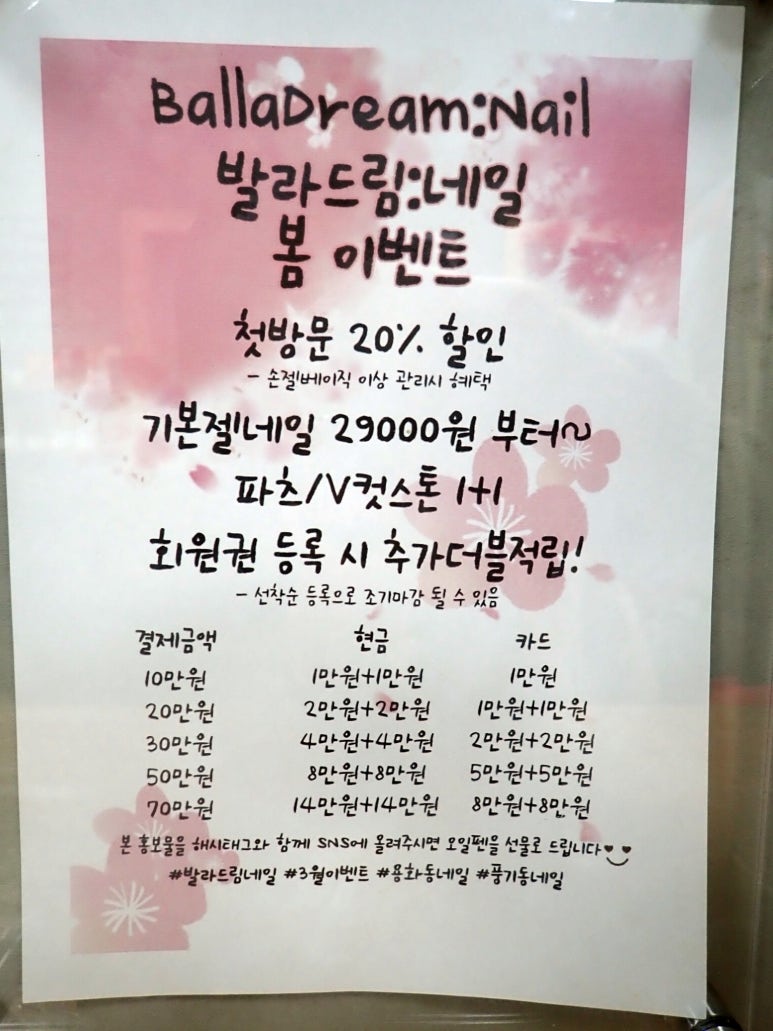 BallaDream:Nail
발라드림:네일
봄 이벤트
첫방문 20% 할인
- 손젤베이직 이상 관리시 혜택
기본젤네일 29000원 부터~
파츠/V컷스톤 1+1
회원권 등록 시 추가더블적립!
- 선착순 등록으로 조기마감 될 수 있음
결제금액 현금 카드
10만원 1만원+1만원 1만원
20만원 2만원+2만원 1만원+1만원
30만원 4만원+4만원 2만원+2만원
50만원 8만원+8만원 5만원+5만원
70만원 14만원+14만원 8만원+8만원
본 홍보물을 해시태그와 함께 SNS에 올려주시면 오일펜을 선물로 드립니다♥‿♥
#발라드림네일 #3월이벤트 #용화동네일 #풍기동네일